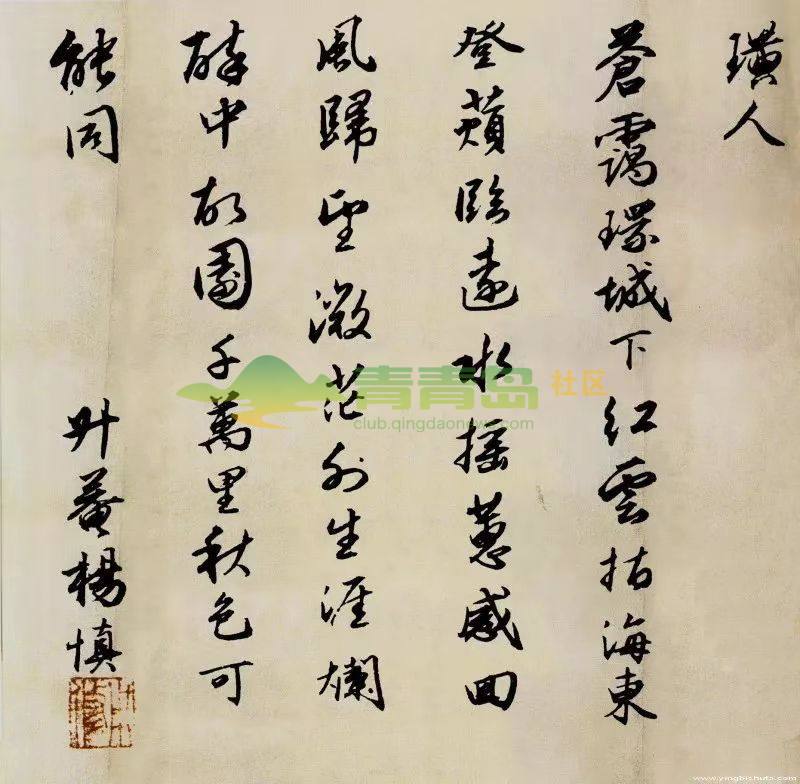 璜人
蒼靄環城下紅雲指海東
登蘋臨遠水搖蕙感回
風歸望微茫外生涯爛
醉中故園千萬里秋色可
能同
升菴楊慎
青青岛社区
club.qingdaonews.com
www.yingbishufa.com